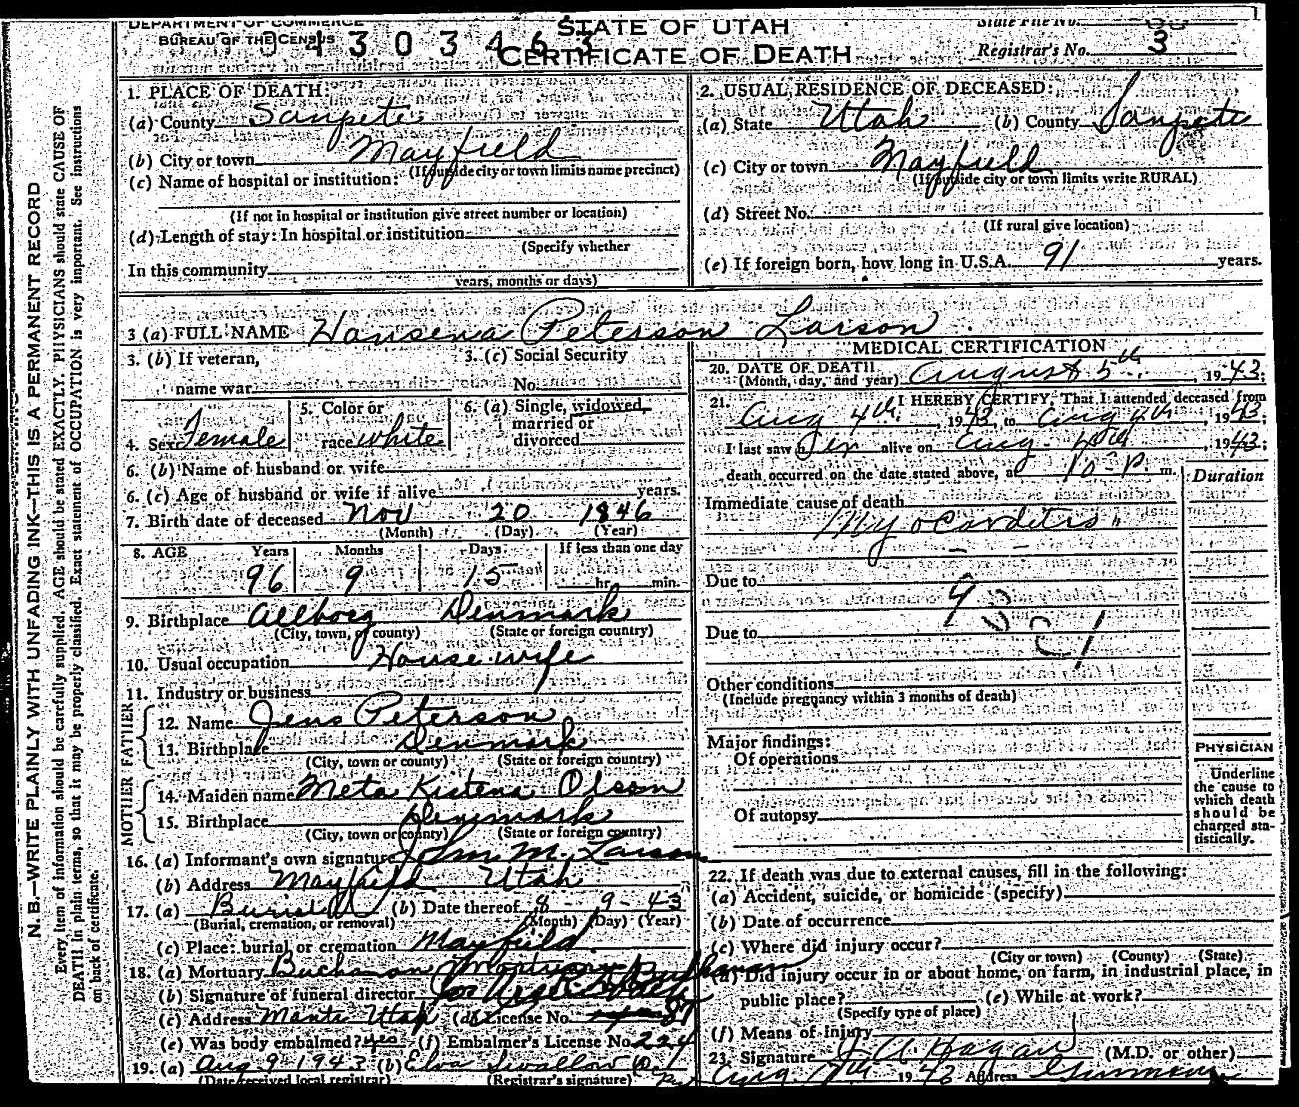 DEPARTMENT OF COMMERCE
BUREAU OF THE CENSUS
STATE OF UTAH
CERTIFICATE OF DEATH
State File No.
Registrar's No. 3
1. PLACE OF DEATH:
(a) County Sanpete
(b) City or town Mayfield
(If outside city or town limits name precinct)
(c) Name of hospital or institution:
(If not in hospital or institution give street number or location)
(d) Length of stay: In hospital or institution
(Specify whether
In this community
years, months or days)
2. USUAL RESIDENCE OF DECEASED:
(a) State Utah (b) County Sanpete
(c) City or town Mayfield
(If outside city or town limits write RURAL)
(d) Street No.
(If rural give location)
(e) If foreign born, how long in U.S.A. 91 years.
3 (a) FULL NAME Hansena Peterson Larson
3. (b) If veteran,
name war
3. (c) Social Security
No.
4. Sex Female
5. Color or
race white
6. (a) Single, widowed,
married or
divorced
6. (b) Name of husband or wife
6. (c) Age of husband or wife if alive years.
7. Birth date of deceased Nov 20 1846
(Month) (Day) (Year)
8. AGE Years Months Days If less than one day
96 9 15 hr. min.
9. Birthplace Allborg Denmark
(City, town, or county) (State or foreign country)
10. Usual occupation House wife
11. Industry or business
FATHER
12. Name Jens Peterson
13. Birthplace Denmark
(City, town or county) (State or foreign country)
MOTHER
14. Maiden name Meta Kistena Olson
15. Birthplace Denmark
(City, town or county) (State or foreign country)
16. (a) Informant's own signature John M. Larson
(b) Address Mayfield Utah
17. (a) Burial (b) Date thereof 8 - 9 - 43
(Burial, cremation, or removal) (Month) (Day) (Year)
(c) Place: burial or cremation Mayfield
18. (a) Mortuary Buchanan Mortuary
(b) Signature of funeral director
(c) Address Manti Utah (d) License No. 87
(e) Was body embalmed? yes (f) Embalmer's License No. 224
19. (a) Aug 9 1943 (b) Elva Swallow
(Date received local registrar) (Registrar's signature)
MEDICAL CERTIFICATION
20. DATE OF DEATH
(Month, day, and year) August 5th, 1943;
21. I HEREBY CERTIFY, That I attended deceased from
Aug 4th, 1943, to Aug 4th, 1943;
I last saw her alive on Aug. 4th, 1943;
death occurred on the date stated above, at 10 - P. m.
Duration
Immediate cause of death
Myocarditis
Due to
Due to
Other conditions
(Include pregnancy within 3 months of death)
Major findings:
Of operations
Of autopsy
PHYSICIAN
Underline
the cause to
which death
should be
charged sta-
tistically.
22. If death was due to external causes, fill in the following:
(a) Accident, suicide, or homicide (specify)
(b) Date of occurrence
(c) Where did injury occur?
(City or town) (County) (State)
(d) Did injury occur in or about home, on farm, in industrial place, in
public place? (e) While at work?
(Specify type of place)
(f) Means of injury
23. Signature J. A. Hagan (M.D. or other)
Aug. 1943 Address Gunnison
N. B.—WRITE PLAINLY WITH UNFADING INK—THIS IS A PERMANENT RECORD
Every item of information should be carefully supplied. AGE should be stated EXACTLY. PHYSICIANS should state CAUSE OF
DEATH in plain terms, so that it may be properly classified. Exact statement of OCCUPATION is very important. See instructions
on back of certificate.